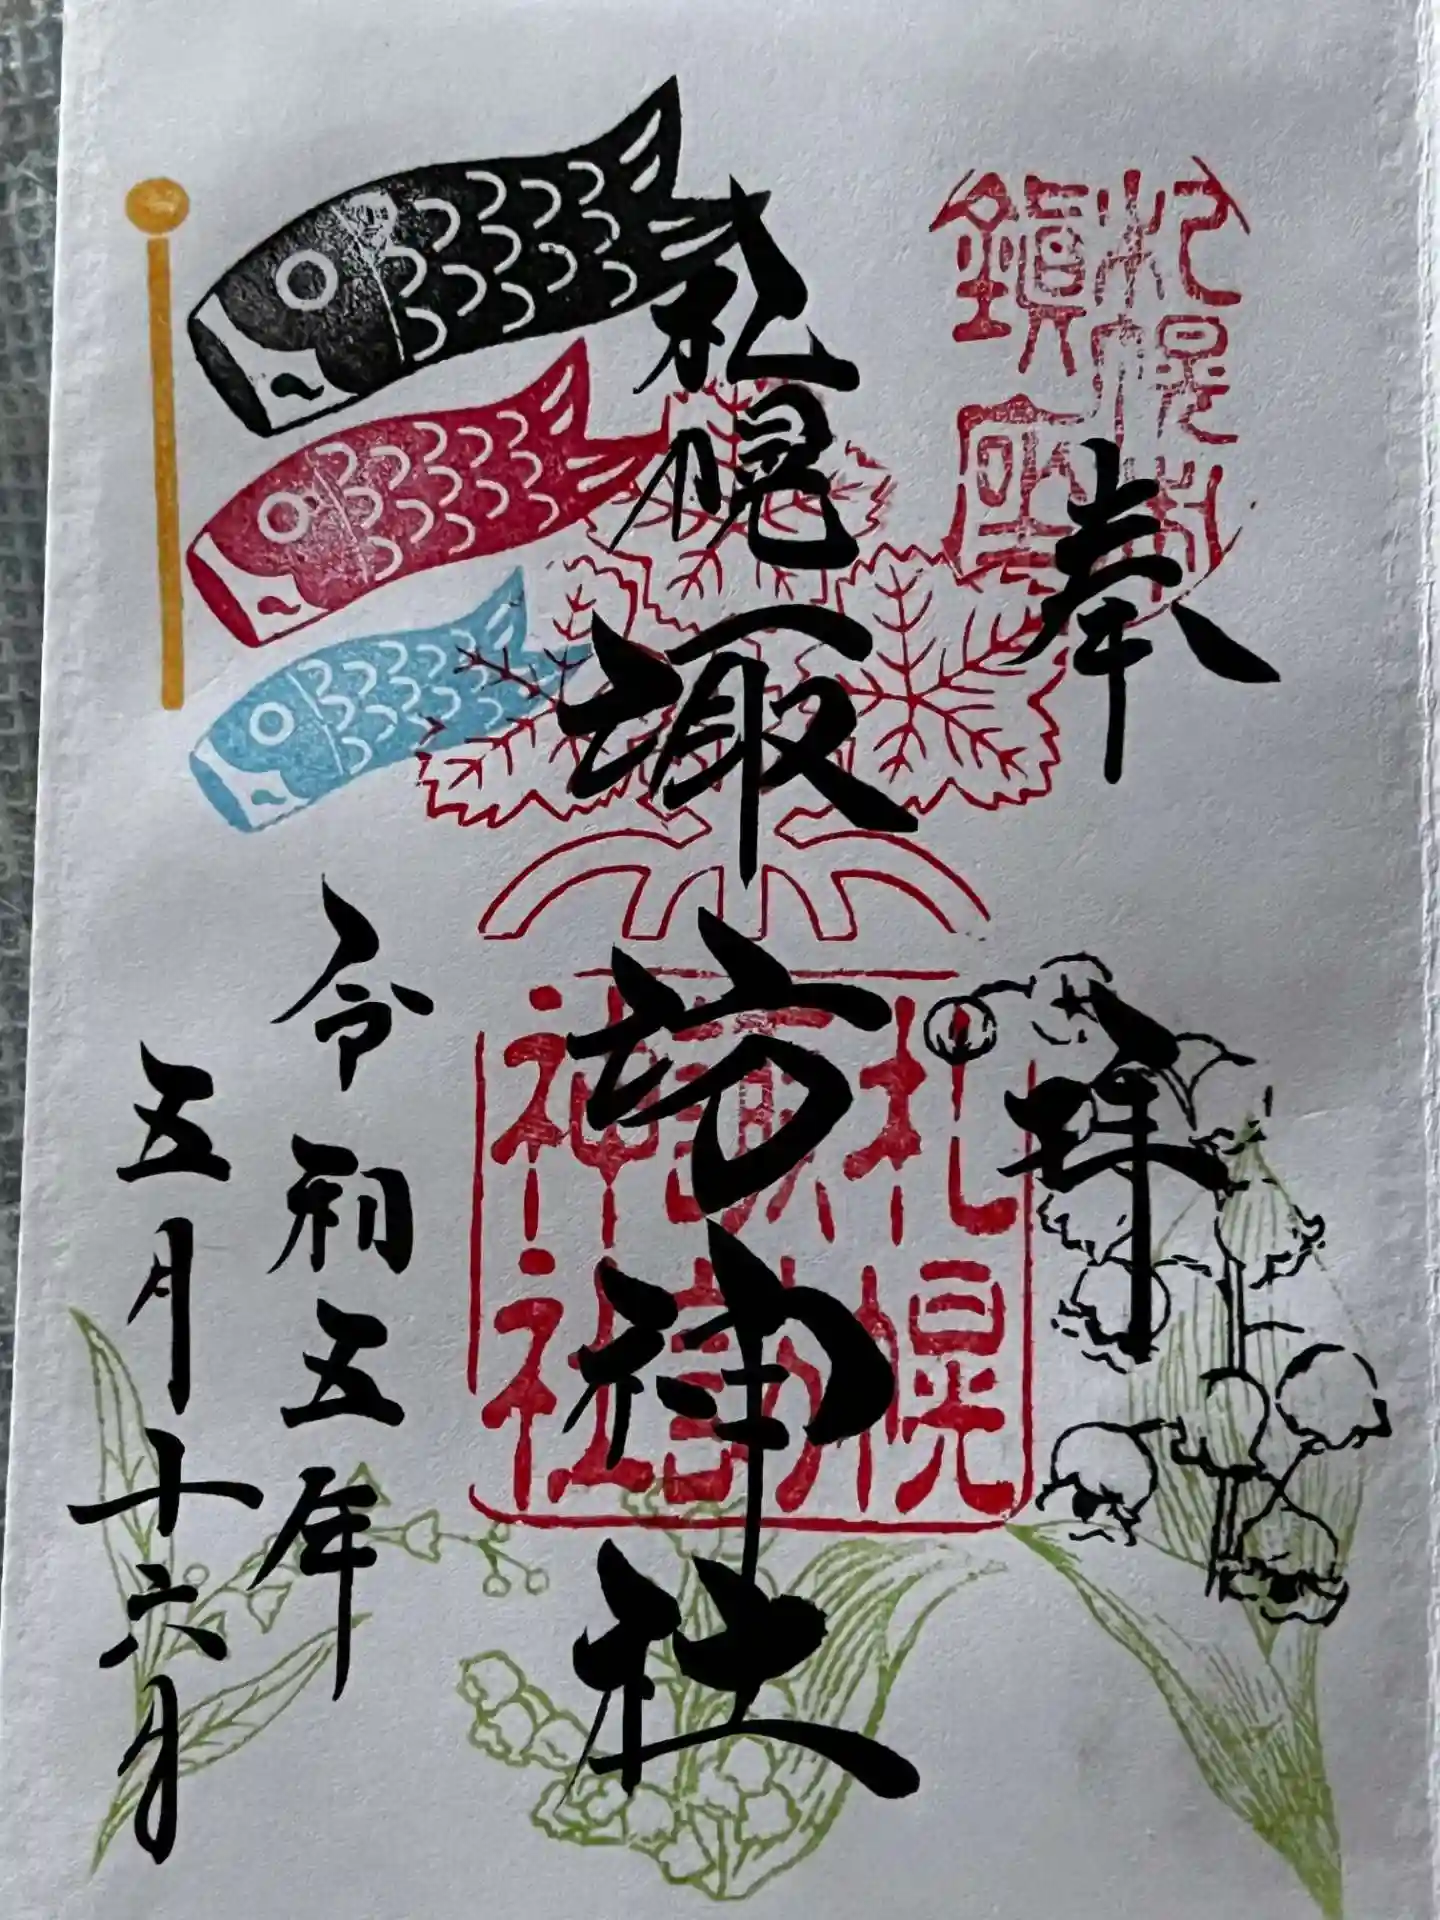 札幌市
鎮座
奉拝
札幌諏訪神社
札幌
諏訪
神社
令和五年
五月十六日